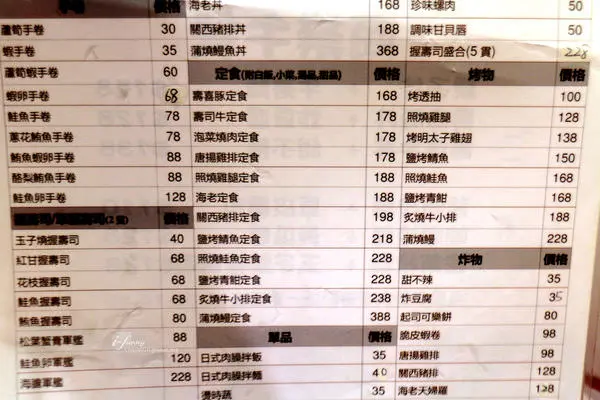 手卷 價格
蘆筍手卷 30
蝦手卷 35
蘆筍蝦手卷 60
蝦卵手卷 68
鮭魚手卷 78
蔥花鮪魚手卷 78
鮪魚蝦卵手卷 88
酪梨鮪魚手卷 88
鮭魚卵手卷 128
價格
玉子燒握壽司 40
紅甘握壽司 68
花枝握壽司 68
鮭魚握壽司 68
鮪魚握壽司 80
松葉蟹膏軍艦 88
鮭魚卵軍艦 120
海膽軍艦 228
海老丼 168
關西豬排丼 188
蒲燒鰻魚丼 368
定食(附白飯,小菜,湯品,甜品) 價格
壽喜豚定食 168
壽司牛定食 178
泡菜燒肉定食 178
唐揚雞排定食 178
照燒雞腿定食 178
海老定食 188
關西豬排定食 198
鹽烤鯖魚定食 218
照燒鮭魚定食 228
鹽烤青魽定食 228
炙燒牛小排定食 238
蒲燒鰻定食 388
單品 價格
日式肉臊拌飯 35
日式肉臊拌麵 40
燙時蔬 35
珍味螺肉 50
調味甘貝唇 50
握壽司盛合(5貫) 228
烤物 價格
烤透抽 100
照燒雞腿 128
烤明太子雞翅 138
鹽烤鯖魚 150
照燒鮭魚 168
鹽烤青魽 168
炙燒牛小排 188
蒲燒鰻 228
炸物 價格
甜不辣 35
炸豆腐 35
起司可樂餅 80
脆皮蝦卷 98
唐揚雞排 98
關西豬排 128
海老天婦羅 128